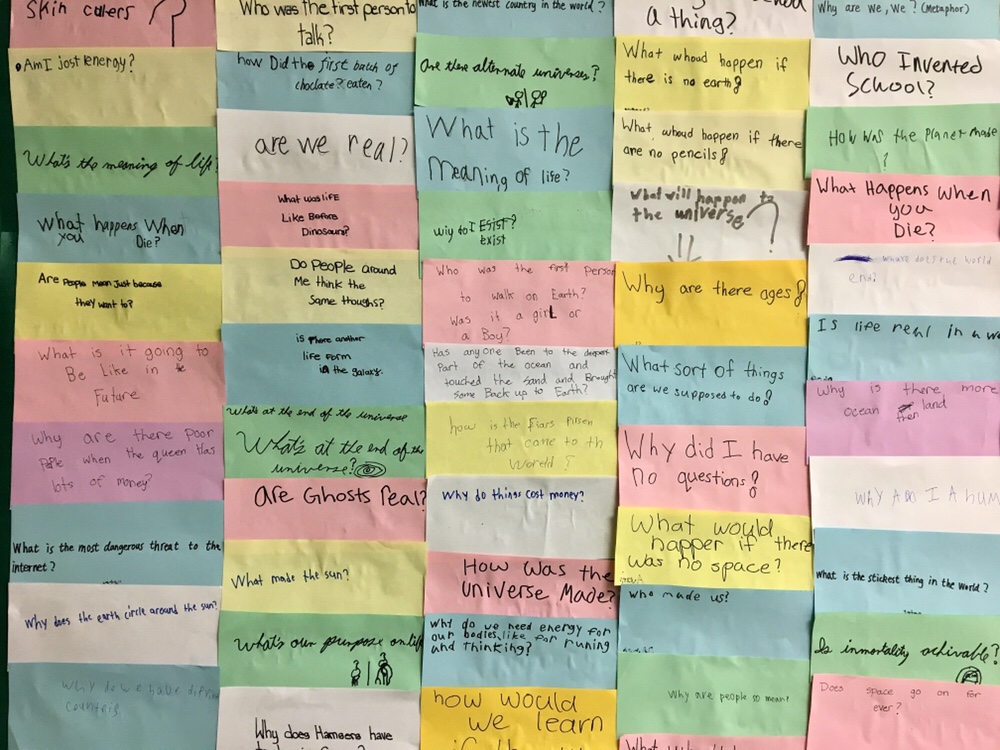 Skin colers ?
•Am I jost energy?
What's the meaning of life?
What happens When
you Die?
Are People Mean Just because
they want to?
What is it going to
Be Like in
Future
Why are there Poor
when the queen Has
lots of money?
What is the most dangerous threat to the
internet?
Why does the earth circle around the sun?
why do we have
countris
Who was the first person to
talk?
how Did the first batch of
choclate? eaten?
are we real?
What was life
Like Before
Dinosaurs?
Do People around
Me think the
Same thoughs?
is there another
life form
in the galaxy.
What's at the end of the universe
What's at the end of the
universe?
are Ghosts real?
What made the sun?
What's our purpose on life
Why does Hamsers have
What is the newest country in the world?
Are there alternate universes?
What is the
Meaning of life?
wiy do I Esist?
exist
Who was the first Person
to walk on Earth?
Was it a girl or
a Boy?
Has anyone Been to the deepest
Part of the ocean and
touched the Sand and Brought
Some Back up to Earth?
how is the Fiars
that came to th
World ?
Why do things cost money?
How Was the
Universe Made?
Why do we need energy for
our bodies, like for runing
and thinking?
how would
we learn
a thing?
What whoud happen if
there is no earth?
What whoud happen if there
are no pencils?
What will happen to
the universe ?
Why are there ages?
What sort of things
are we supposed to do?
Why did I have
no questions?
What would
happer if there
was no space?
who made us?
Why are people so mean?
Why are we, we? (Metaphor)
Who Invented
School?
How was the planet made
?
What Happens when
you
Die?
where does the world
end?
Is life real in a
Why is there more
ocean then land
WHY I A HUM
What is the stickest thing in the World?
Is inmortality achivable?
Does space go on for
ever?